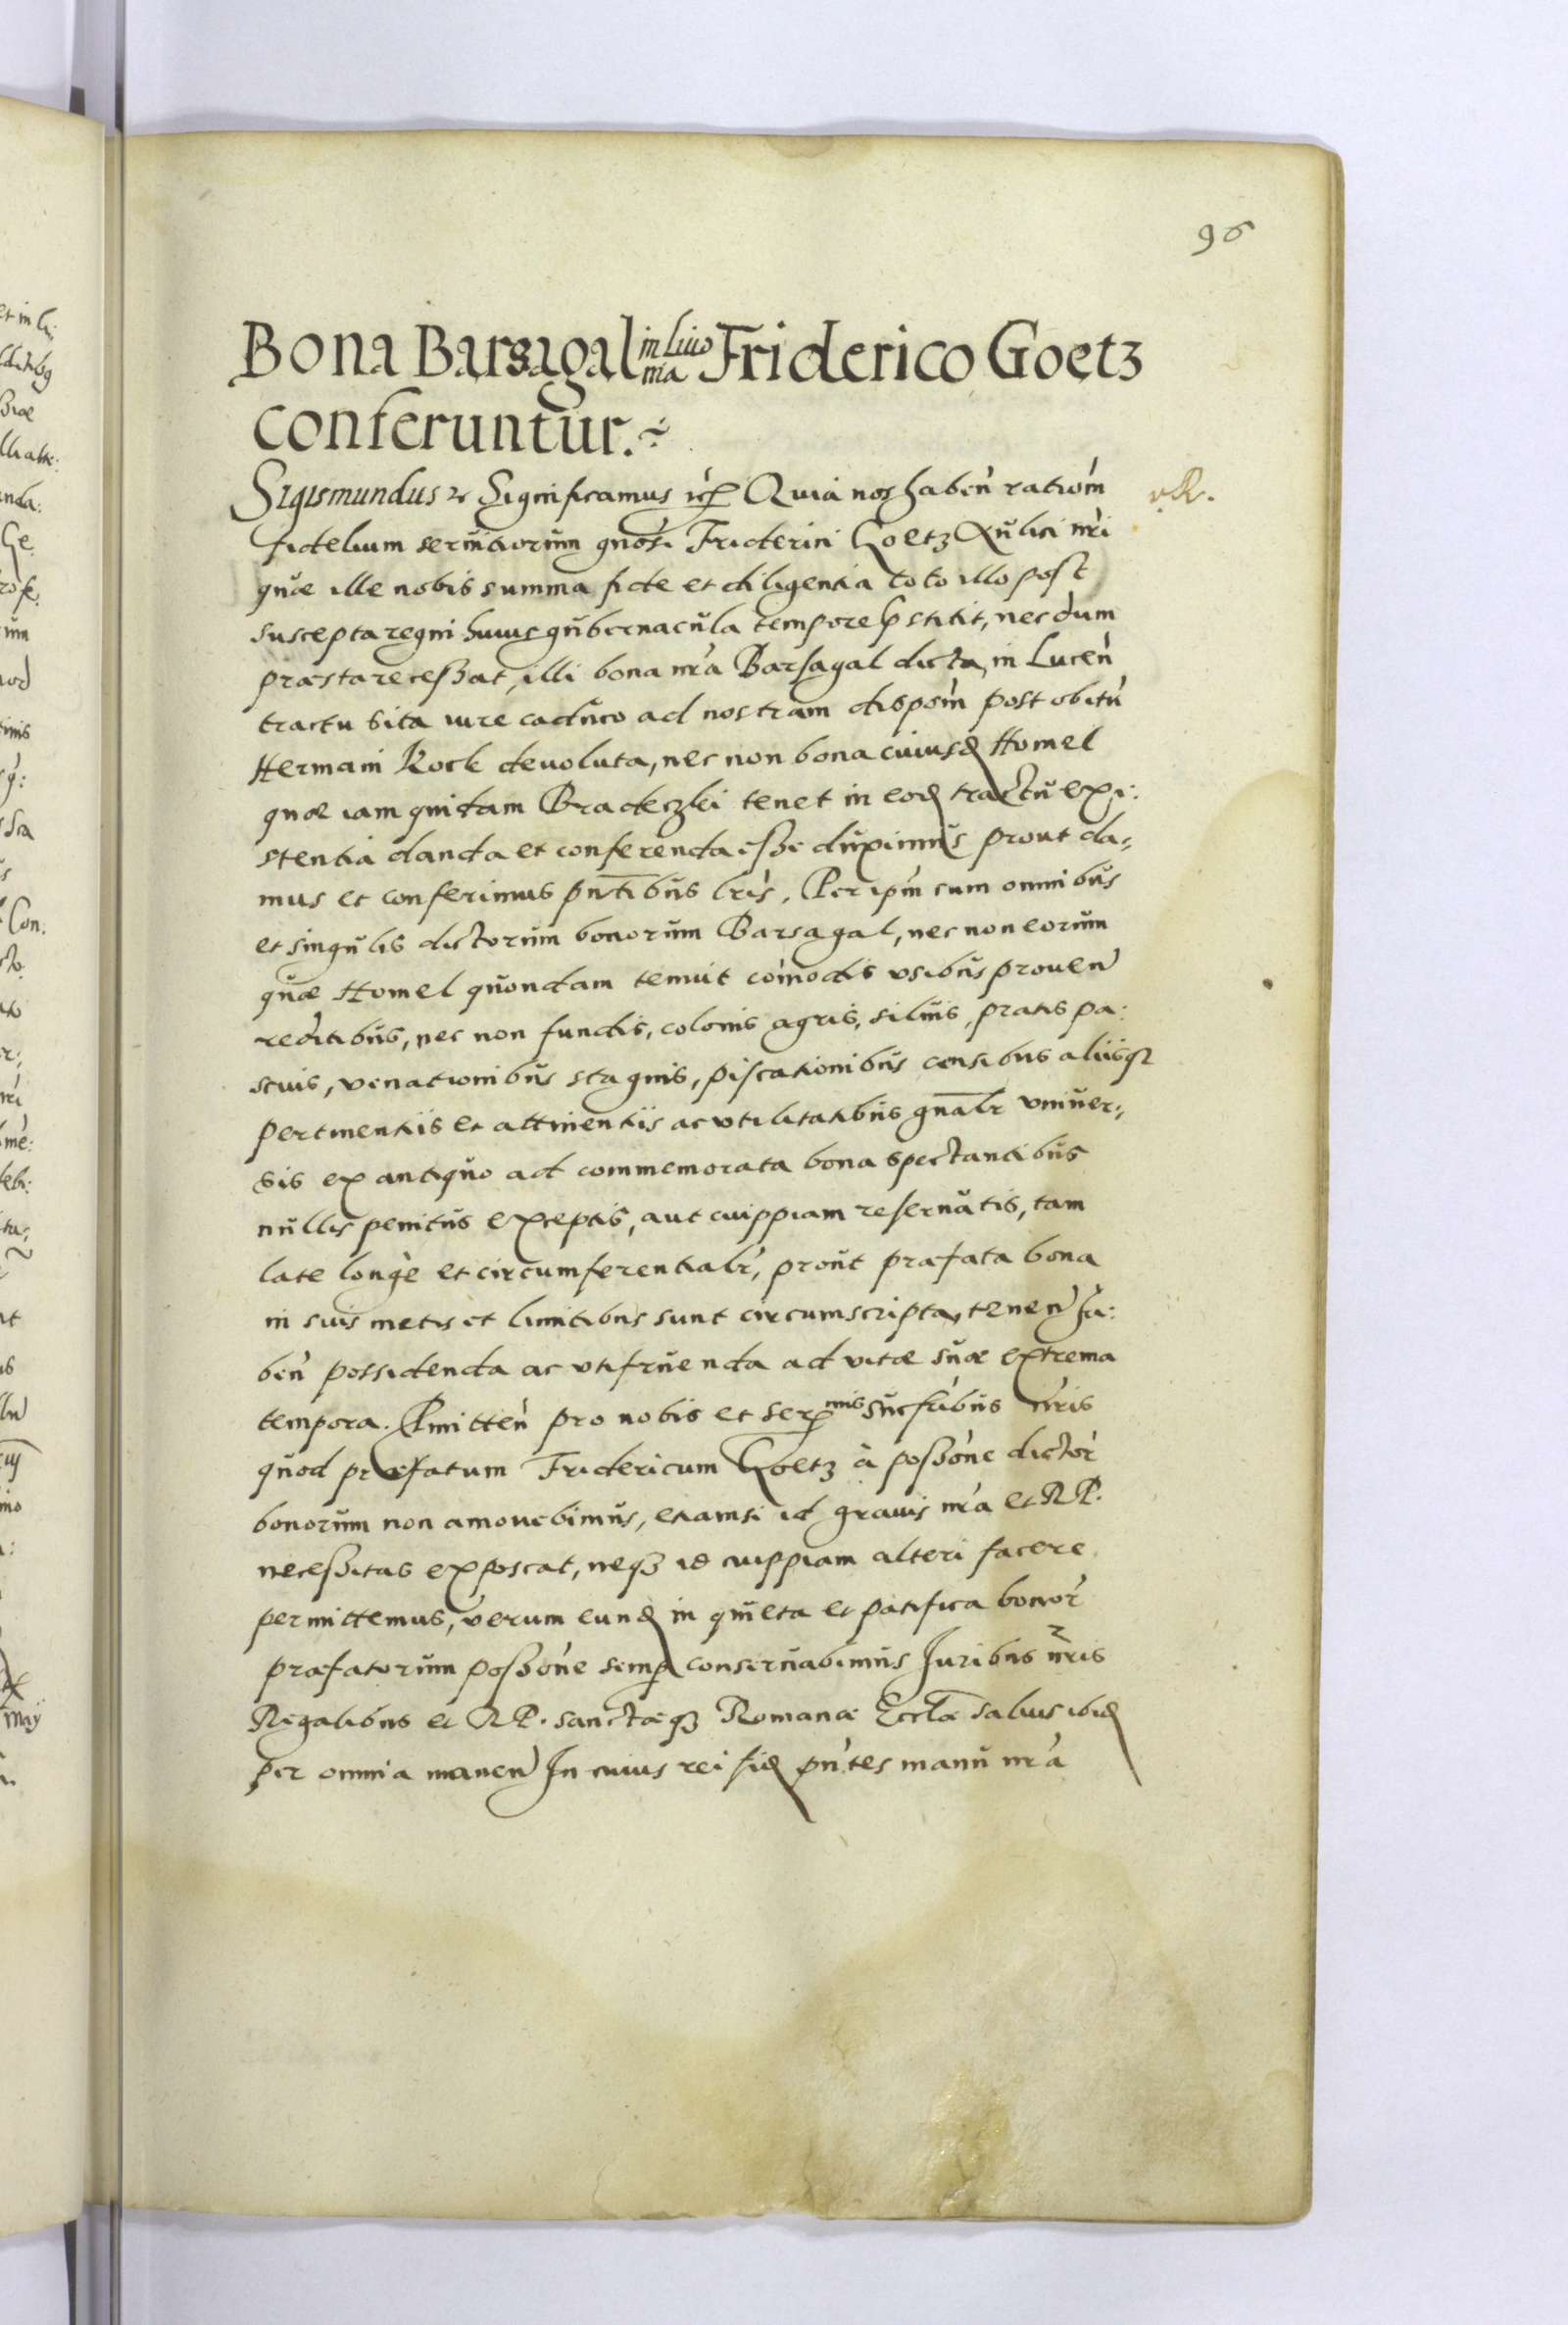 96
Bona Barsagal in Liuonia Friderico Goetz
conferuntur.
Sigismundus etc Significamus etc Quia nos haben̄ ratiom̄
fidelium seruitiorum gnosi Friderici Goetz Aulici nr̄i
quæ ille nobis summa fide et diligentia toto illo post
suscepta regni huius gubernacula tempore p̄stitit, nec dum
præstare cessat, illi bona nr̄a Barsagal dicta, in Lucen̄
tractu sita iure caduco ad nostram disposim̄ post obitū
Hermani Kock deuoluta, nec non bona cuiusd Homel
quæ iam quidam Bradeczki tenet in eod tractu exi:
stentia danda et conferenda esse duximus prout da:
mus et conferimus pn̄tibus lr̄is. Per ipm̄ cum omnibus
et singulis dictorum bonorum Barsagal, nec non eorum
quæ Homel quondam tenuit com̄odis vsibus prouen̄
reditibus, nec non fundis, colonis agris, siluis, pratis pa:
scuis, venationibus stagnis, piscationibus censibus aliisq3
pertinentiis et attinentiis ac vtilitatibus gn̄alr vniuer:
sis ex antiquo ad commemorata bona spectantibus
nullis penitus exceptis, aut cuippiam reseruatis, tam
late longè et circumferentialr̄, prout præfata bona
in suis metis et limitibus sunt circumscripta, tenen̄ ha:
ben̄ possidenda ac vtifruenda ad vitæ suæ extrema
tempora. Pmitten̄ pro nobis et ser^mis sucsūbus nr̄is
quod præfatum Fridericum Goetz à possone dictor̄
bonorum non amouebimus, etiamsi id grauis nr̄a et RP.
necessitas exposcat, neq3 id cuippiam alteri facere
permittemus, verum eund in quieta et pacifica bonor̄
præfatorum possone semp conseruabimus Juribus nr̄is
Regalibus et RP. sanctæq3 Romanæ Eccl̄æ saluis ibid
per omnia manen̄ In cuius rei fid pn̄tes manu nr̄a